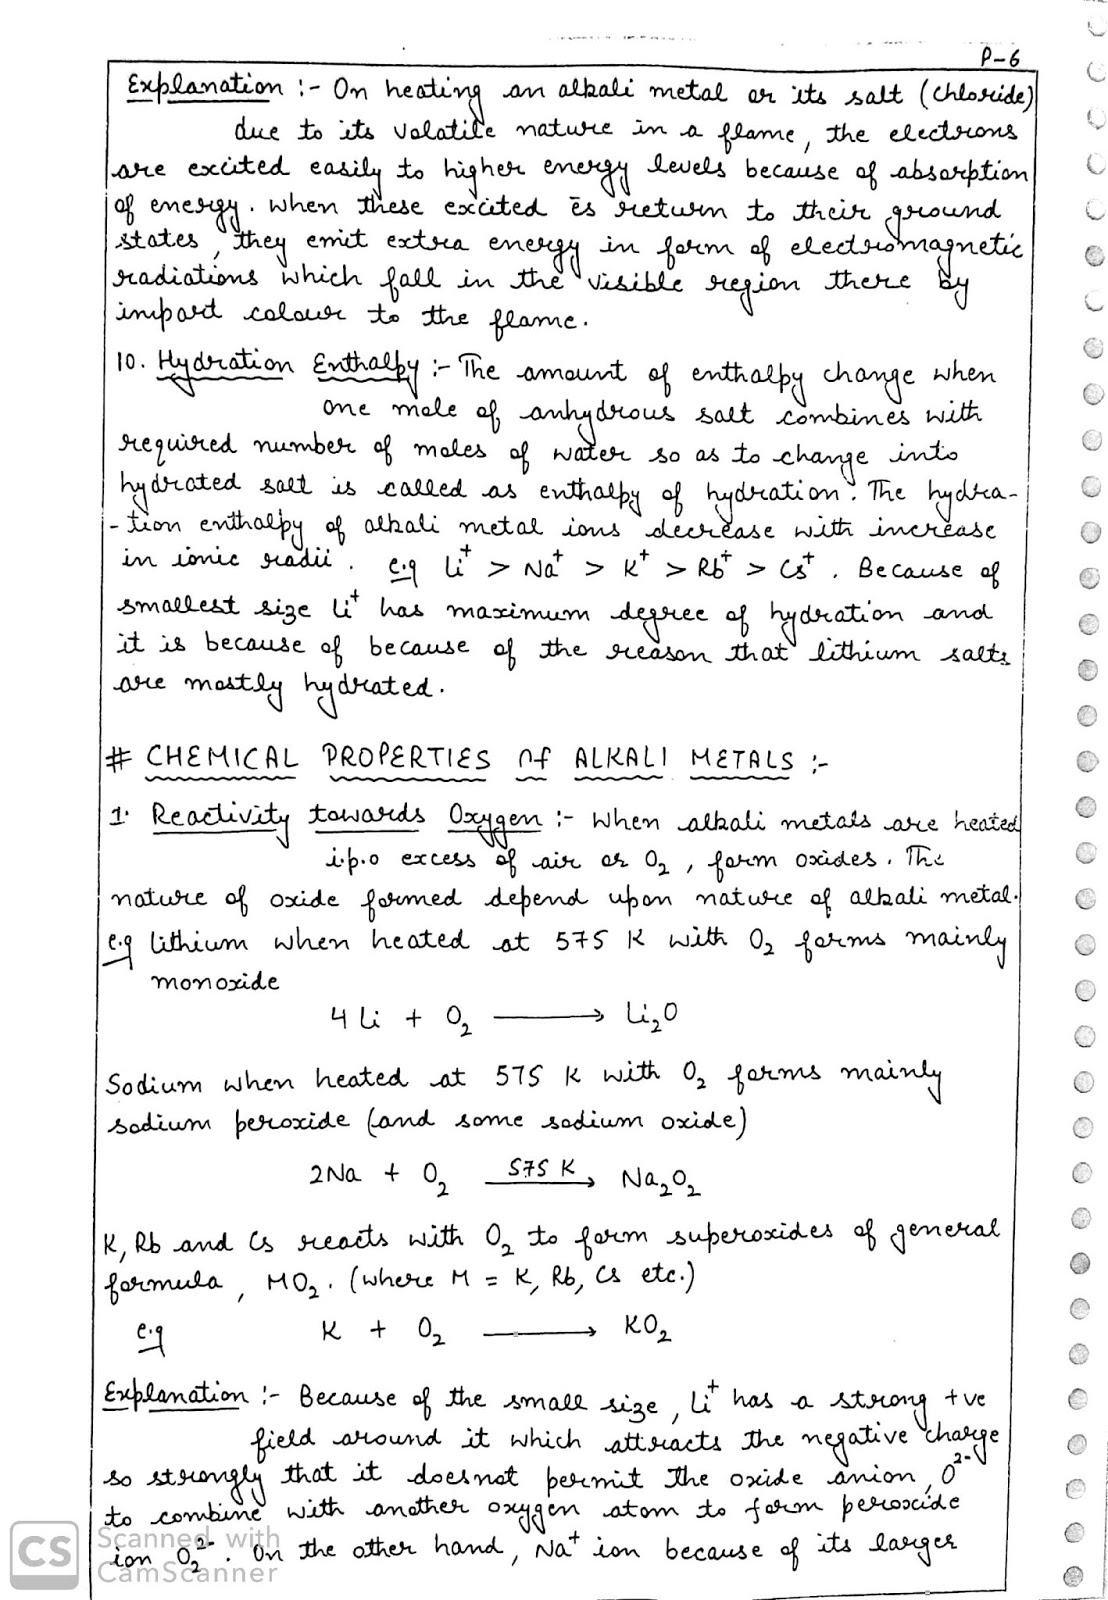 P-6
Explanation :- On heating an alkali metal or its salt (chloride)
due to its volatile nature in a flame, the electrons
are excited easily to higher energy levels because of absorption
of energy. When these excited ēs return to their ground
states, they emit extra energy in form of electromagnetic
radiations which fall in the visible region there by
impart colour to the flame.
10. Hydration Enthalpy :- The amount of enthalpy change when
one mole of anhydrous salt combines with
required number of moles of water so as to change into
hydrated salt is called as enthalpy of hydration. The hydra-
-tion enthalpy of alkali metal ions decrease with increase
in ionic radii. e.g Li⁺ > Na⁺ > K⁺ > Rb⁺ > Cs⁺. Because of
smallest size Li⁺ has maximum degree of hydration and
it is because of because of the reason that lithium salts
are mostly hydrated.
# CHEMICAL PROPERTIES Of ALKALI METALS :-
1. Reactivity towards Oxygen :- When alkali metals are heated
i.p.o excess of air or O₂, form oxides. The
nature of oxide formed depend upon nature of alkali metal.
e.g Lithium when heated at 575 K with O₂ forms mainly
monoxide
4 Li + O₂ ⟶ Li₂O
Sodium when heated at 575 K with O₂ forms mainly
sodium peroxide (and some sodium oxide)
2Na + O₂ —575 K→ Na₂O₂
K, Rb and Cs reacts with O₂ to form superoxides of general
formula, MO₂. (where M = K, Rb, Cs etc.)
e.g K + O₂ ⟶ KO₂
Explanation :- Because of the small size, Li⁺ has a strong +ve
field around it which attracts the negative charge
so strongly that it doesnot permit the oxide anion, O²⁻
to combine with another oxygen atom to form peroxide
ion O₂²⁻. On the other hand, Na⁺ ion because of its larger
CS Scanned with
CamScanner